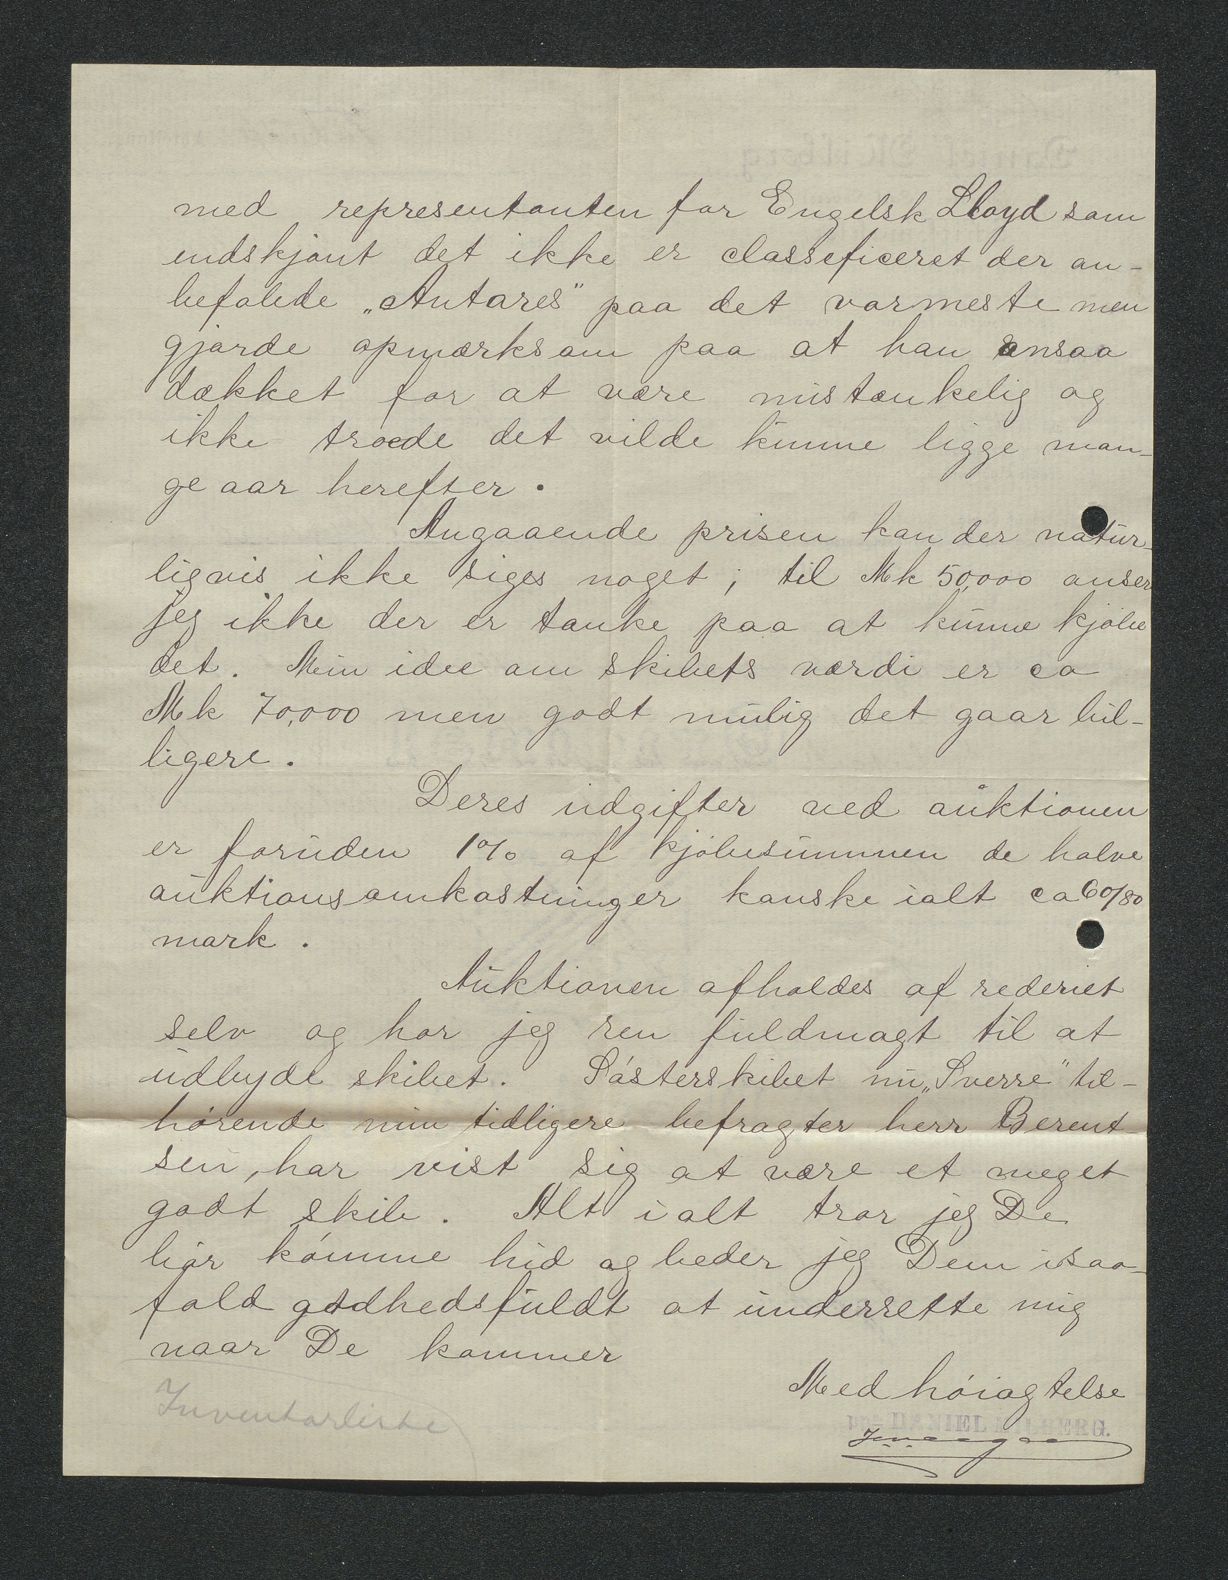 med representanten for Engelsk Lloyd som
endskjönt det ikke er classeficeret der an-
befalede „Antares" paa det varmeste men
gjorde opmærksom paa at han ansaa
dækket for at være mistænkelig og
ikke troede det vilde kunne ligge man-
ge aar herefter.
Angaaende prisen kan der natur-
ligvis ikke siges noget; til Mk 50,000 anser
jeg ikke der er tanke paa at kunne kjöbe
det. Min idee om skibets værdi er ca
Mk 70,000 men godt mulig det gaar bil-
ligere.
Deres udgifter ved auktionen
er foruden 1% af kjöbesummen de halve
auktionsomkostninger kanske ialt ca 60/80
mark.
Auktionen afholdes af rederiet
selv og har jeg ren fuldmagt til at
udbyde skibet. Sösterskibet nu „Sverre" til-
hörende min tidligere befragter herr Berent-
sen, har vist sig at være et meget
godt skib. Alt i alt tror jeg De
bör komme hid og beder jeg Dem isaa-
fald godhedsfuldt at underrette mig
naar De kommer
Med höiagtelse
DANIEL MILBERG.
Inventarliste